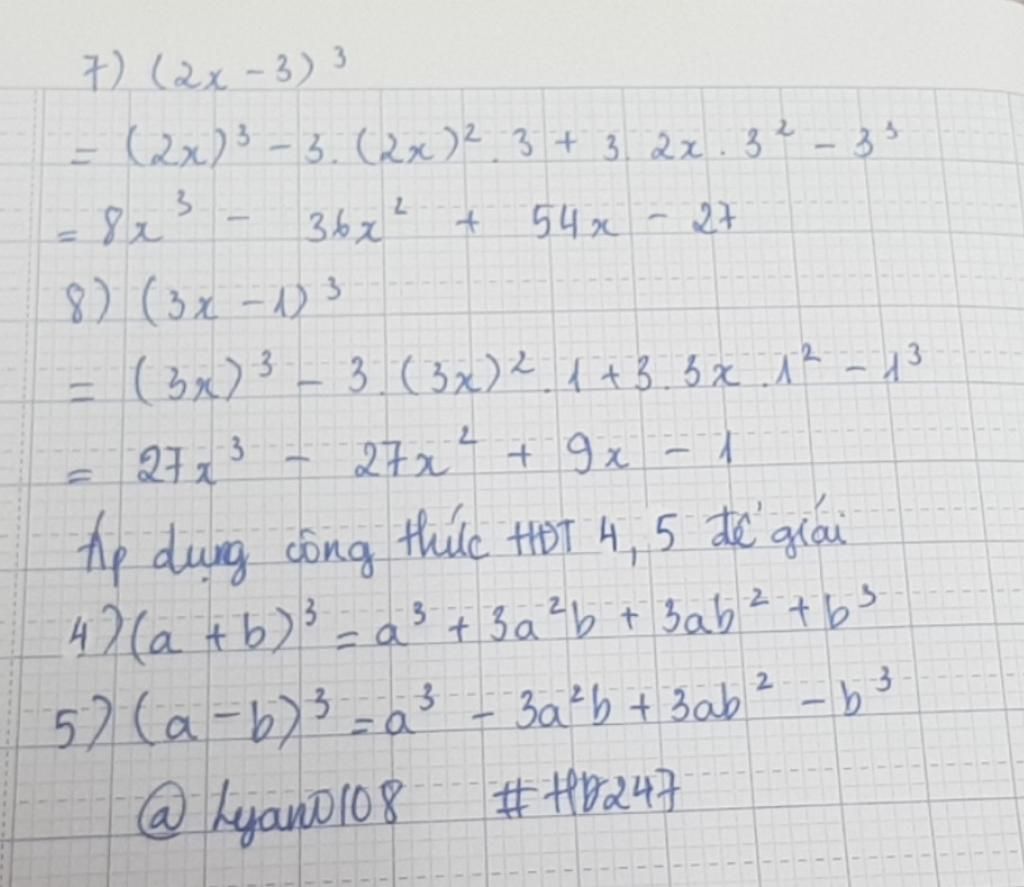 7) (2x - 3)³
= (2x)³ - 3. (2x)². 3 + 3 2x. 3² - 3³
= 8x³ - 36x² + 54x - 27
8) (3x - 1)³
= (3x)³ - 3. (3x)². 1 + 3. 3x. 1² - 1³
= 27x³ - 27x² + 9x - 1
Áp dụng công thức HĐT 4, 5 để giải
4) (a + b)³ = a³ + 3a²b + 3ab² + b³
5) (a - b)³ = a³ - 3a²b + 3ab² - b³
@ hyan0108 #HD247